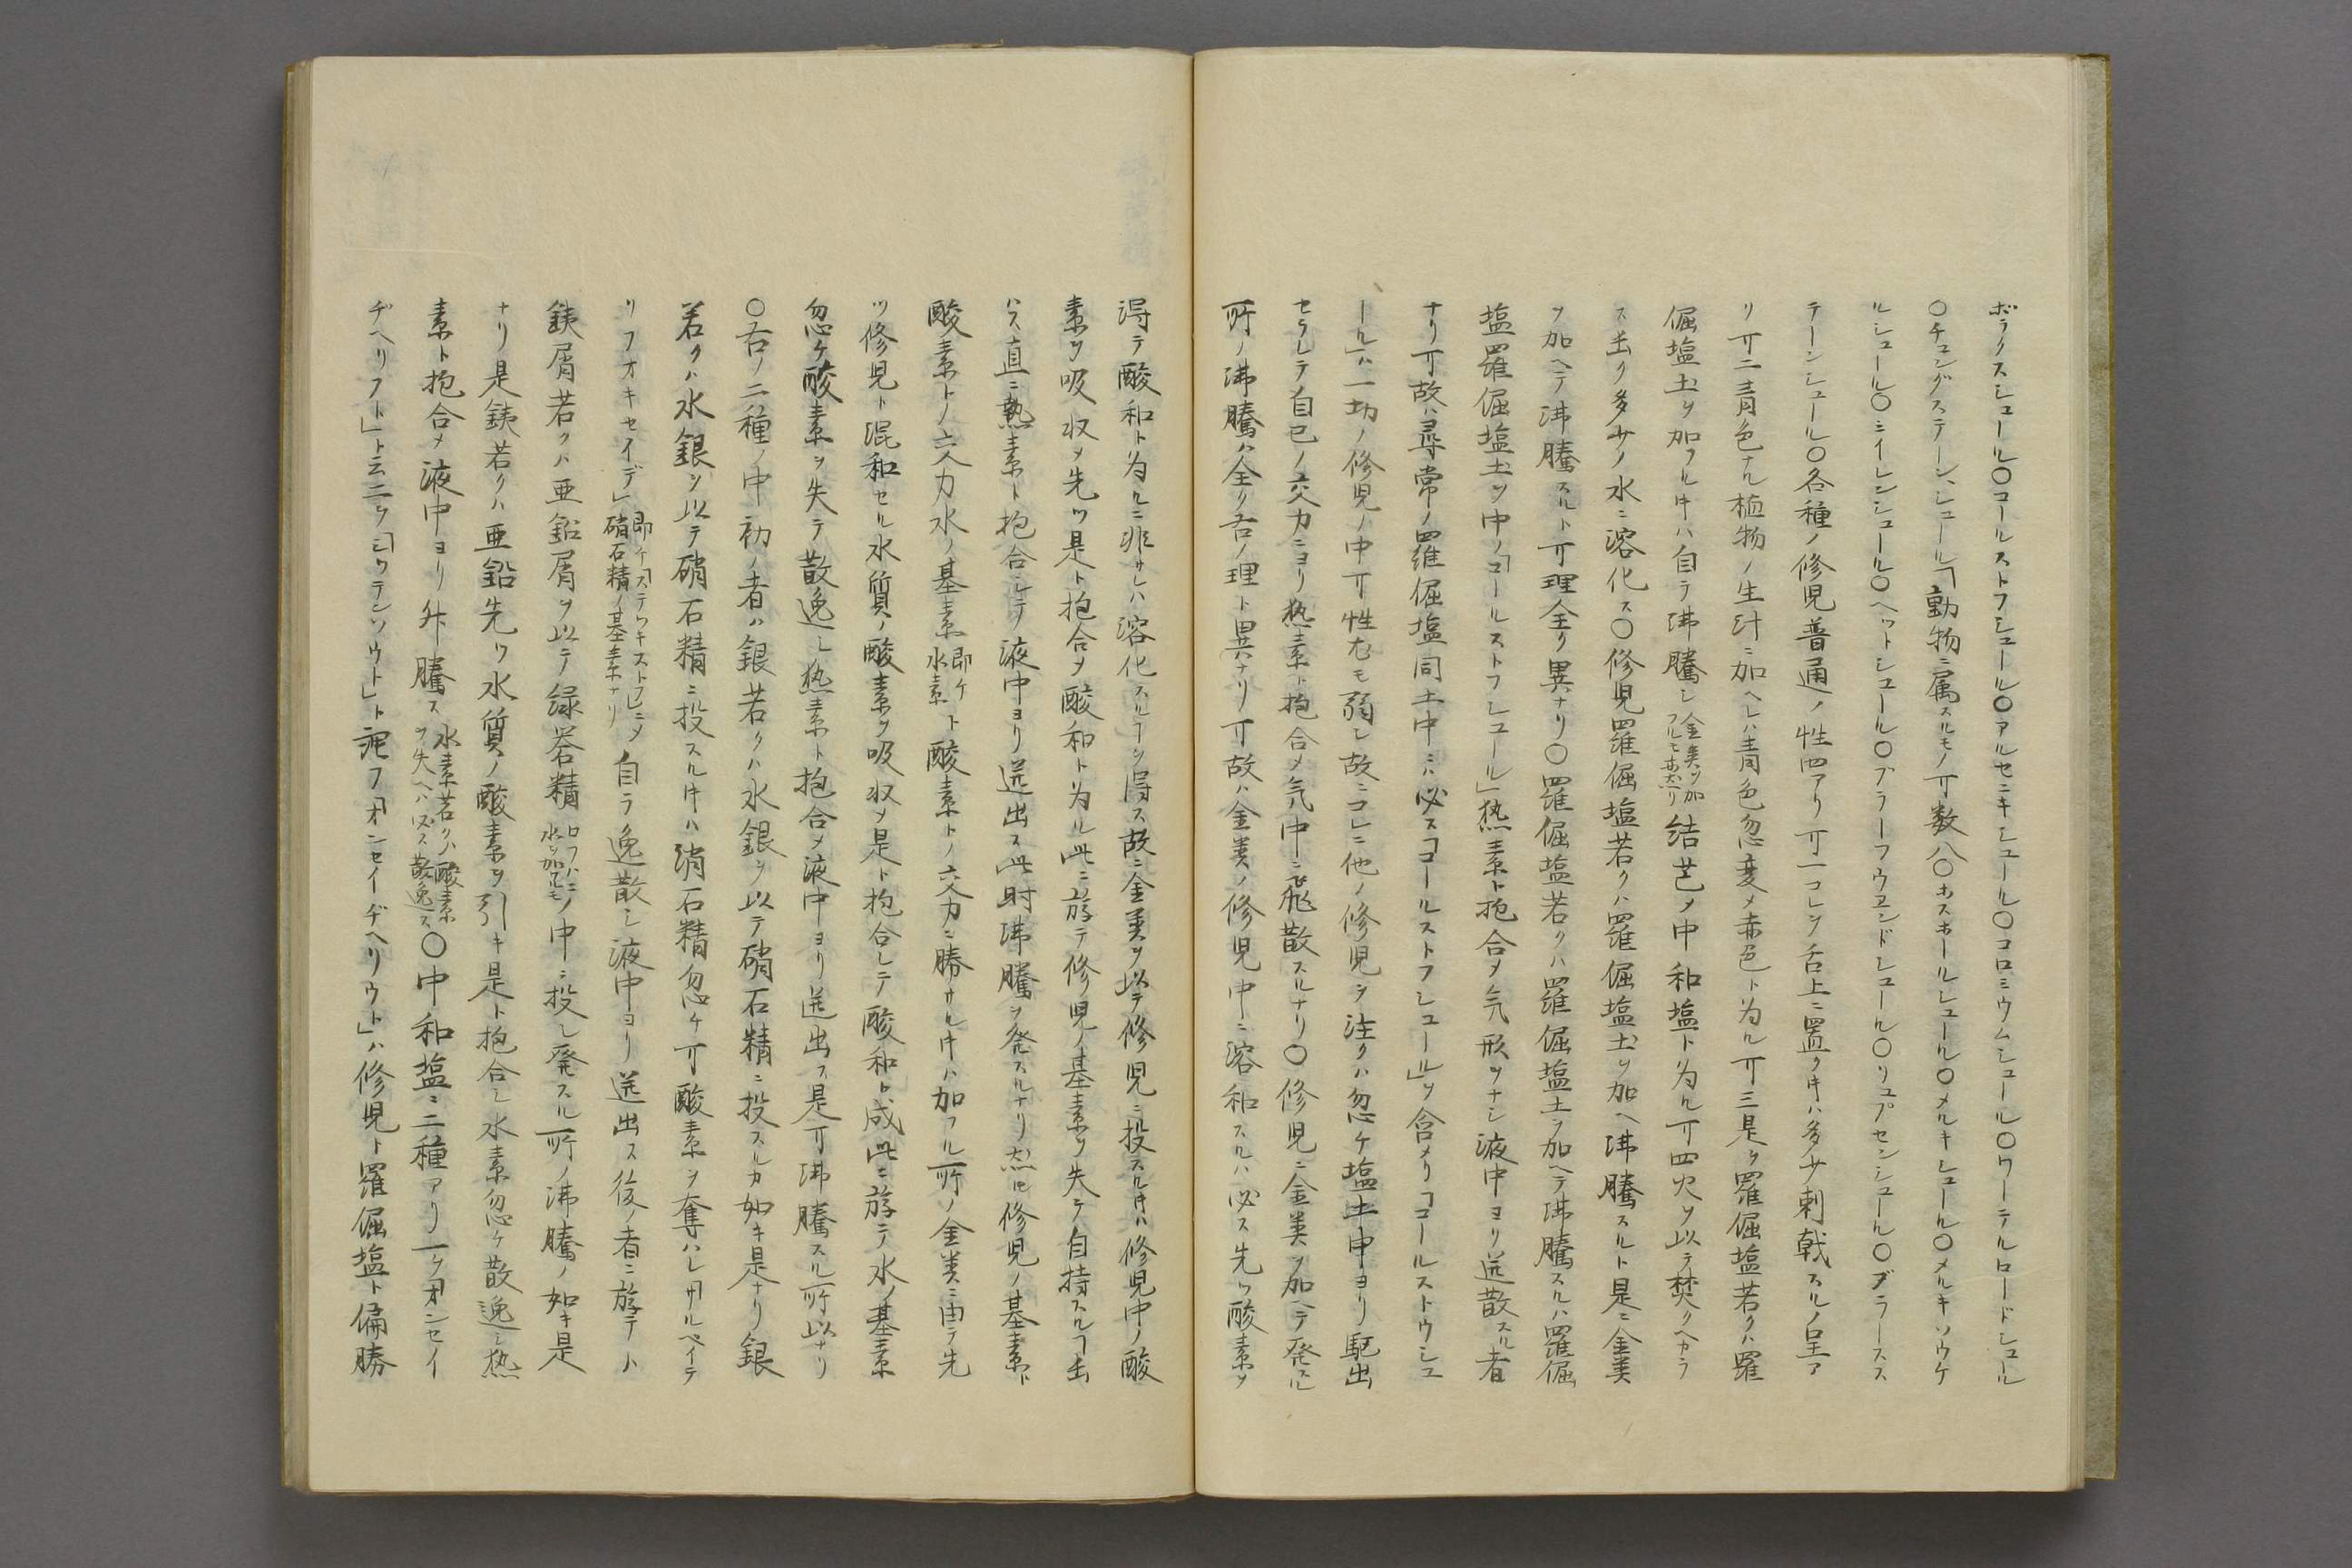 ボラクスシュール〇コールストフシュール〇アルセニキシュール〇コロミウムシュール〇ワーテルロードシュール
〇チュングステーン、シュール「動物ニ属スルモノ丌数八〇ホスホールシュール〇メルキシュール〇メルキソウケ
ルシュール〇ミイレンシュール〇ヘットシュール〇ブラーフウヱンドシュール〇リュプセンシュール〇ブラースス
テーンシュール〇各種ノ修児普通ノ性四アリ丌一コレヲ舌上ニ置クキハ多少刺戟スルノ呈ア
リ丌二青色ナル植物ノ生汁ニ加ヘレハ青色忽変メ赤色ト為ル丌三是ヲ羅倔塩若クハ羅
倔塩土ヲ加フルキハ自テ沸騰シ金类ヲ加フルモ亦然リ結芒メ中和塩ト為ル丌四火ヲ以テ焚クヘカラ
ス全ク多少ノ水ニ溶化ス〇修児羅倔塩若クハ羅倔塩土ヲ加ヘ沸騰スルト是ニ金类
ヲ加ヘテ沸騰スルト丌理全ク異ナリ〇羅倔塩若クハ羅倔塩土ヲ加ヘテ沸騰スルハ羅倔
塩羅倔塩土ヲ中ノ「コールストフシュール」熱素ト抱合メ気形ヲナシ液中ヨリ迸散スル者
ナリ丌故ハ尋常ノ羅倔塩同土中ニハ必ス「コールストフシュール」ヲ含メリ「コールストウシュ
ール」ハ一切ノ修児ノ中丌性尤モ弱シ故ニコレニ他ノ修児ヲ注クハ忽ケ塩土中ヨリ駆出
セラレテ自己ノ交力ニヨリ熱素ト抱合メ気中ニ飛散スルナリ〇修児ニ金类ヲ加ヘテ発スル
所ノ沸騰ハ全ク右ノ理ト異ナリ丌故ハ金类ノ修児中ニ溶和スルハ必ス先ツ酸素ヲ
得テ酸和ト為ルニ非サレハ溶化スルヿヲ得ス故ニ金类ヲ以テ修児ニ投スルキハ修児中ノ酸
素ヲ吸収メ先ツ是ト抱合メ酸和ト為ル此ニ於テ修児ノ基素ヲ失テ自持スルヿ
ハス直ニ熱素ト抱合シテ液中ヨリ迸出ス此時沸騰ヲ発スルナリ然ルニ修児ノ基素ト
酸素トノ交力水ノ基素即ケ水素ト酸素トノ交力ニ勝サルキハ加フル所ノ金类ニ由テ先
ツ修児ト混和セル水質ノ酸素ヲ吸収メ是ト抱合シテ酸和ト成此ニ於テ水ノ基素
忽ケ酸素ヲ失テ散逸シ熱素ト抱合メ液中ヨリ迸出ス是丌沸騰スル所以ナリ
〇右ノ二種ノ中初ノ者ハ銀若クハ水銀ヲ以テ硝石精ニ投スルカ如キ是ナリ銀
若クハ水銀ヲ以テ硝石精ニ投スルキハ消石精忽ケ丌酸素ヲ奪ハレ「サルペイテ
リフオキセイデ」即ケ「ステウキストフ」ニメ硝石精ノ基素ナリ自ラ逸散シ液中ヨリ迸出ス後ノ者ニ於テハ
鉄屑若クハ亜鉛屑ヲ以テ緑礬精ノ中ニ投シ発スル所ノ沸騰ノ如キ是
ナリ是鉄若クハ亜鉛先ツ水質ノ酸素ヲ引キ是ト抱合シ水素忽ケ散逸シ熱
素ト抱合メ液中ヨリ升騰ス水素若クハ酸素ヲ失ヘハ必ス散逸ス〇中和塩ニ二種アリ一ケ「オンセイ
ヂヘリフト」ト云二ヲ「シウテンソウト」ト詑フ「オンセイヂヘリウト」ハ修児ト羅倔塩ト偏勝